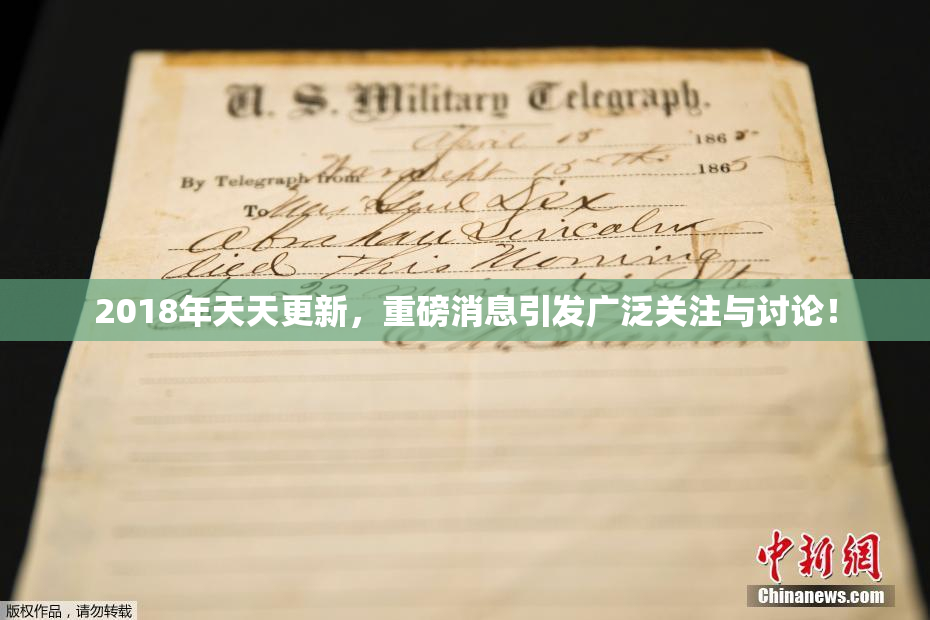 U. S. Military Telegraph.
April 15 1865
By Telegraph from War Dept 15th 1865
To Maj Genl Dix
Abraham Lincoln
died This Morning
at 22 minutes after
2018年天天更新，重磅消息引发广泛关注与讨论！
E. M. Stanton
中新网
Chinanews.com
版权作品，请勿转载